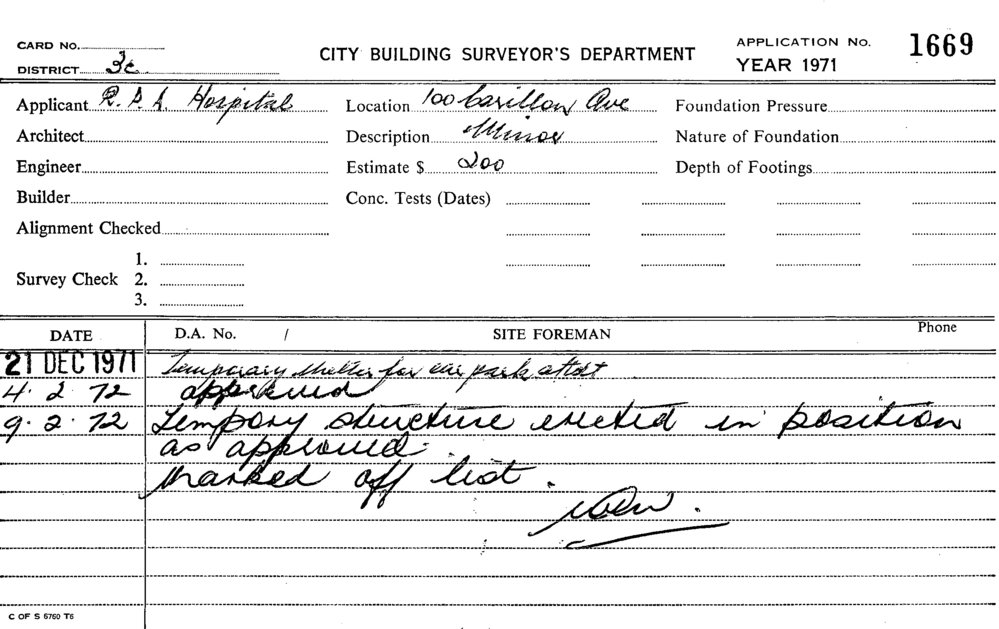 CARD NO.
CITY BUILDING SURVEYOR'S DEPARTMENT
APPLICATION No. 1669
DISTRICT 3c
YEAR 1971
Applicant R.P.A. Hospital
Location 100 Carillon Ave
Foundation Pressure
Architect
Description Minor
Nature of Foundation
Engineer
Estimate $ 200
Depth of Footings
Builder
Conc. Tests (Dates)
Alignment Checked
Survey Check
1.
2.
3.
DATE
D.A. No. /
SITE FOREMAN
Phone
21 DEC 1971 Temporary shelter for car park attdt
4.2.72 approved
9.2.72 Tempory structure erected in position
as approved.
Marked off list.
C OF S 6760 T6